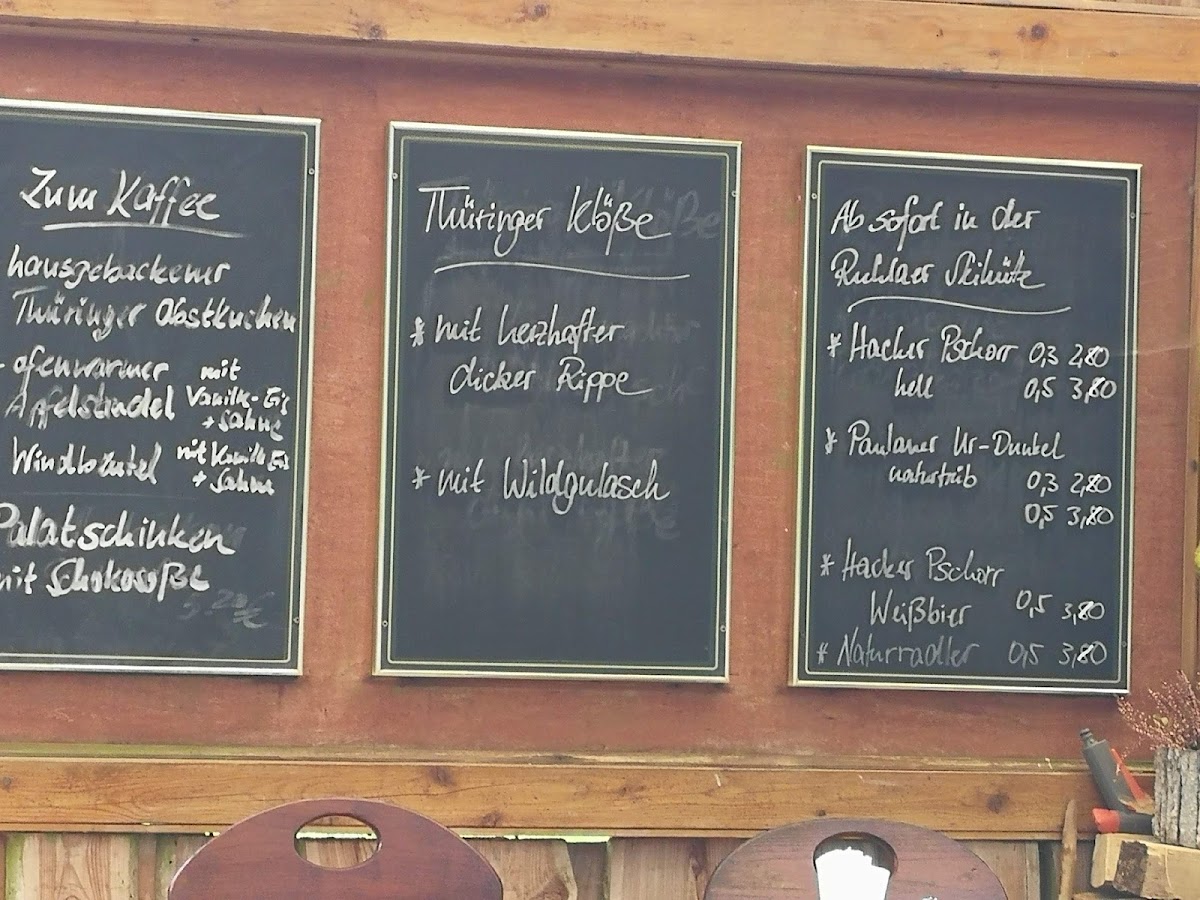 Zum Kaffee
hausgebackener
Thüringer Obstkuchen
- ofenwarmer mit
Apfelstrudel Vanille-Eis
+ Sahne
Windbeutel mit Vanille Eis
+ Sahne
Palatschinken
mit Schokosoße
Thüringer Klöße
* mit herzhafter
dicker Rippe
* mit Wildgulasch
Ab sofort in der
Ruhlaer Skihütte
* Hacker Pschorr 0,3 2,80
hell 0,5 3,80
* Paulaner Ur-Dunkel
naturtrüb 0,3 2,80
0,5 3,80
* Hacker Pschorr
Weißbier 0,5 3,80
* Naturradler 0,5 3,80